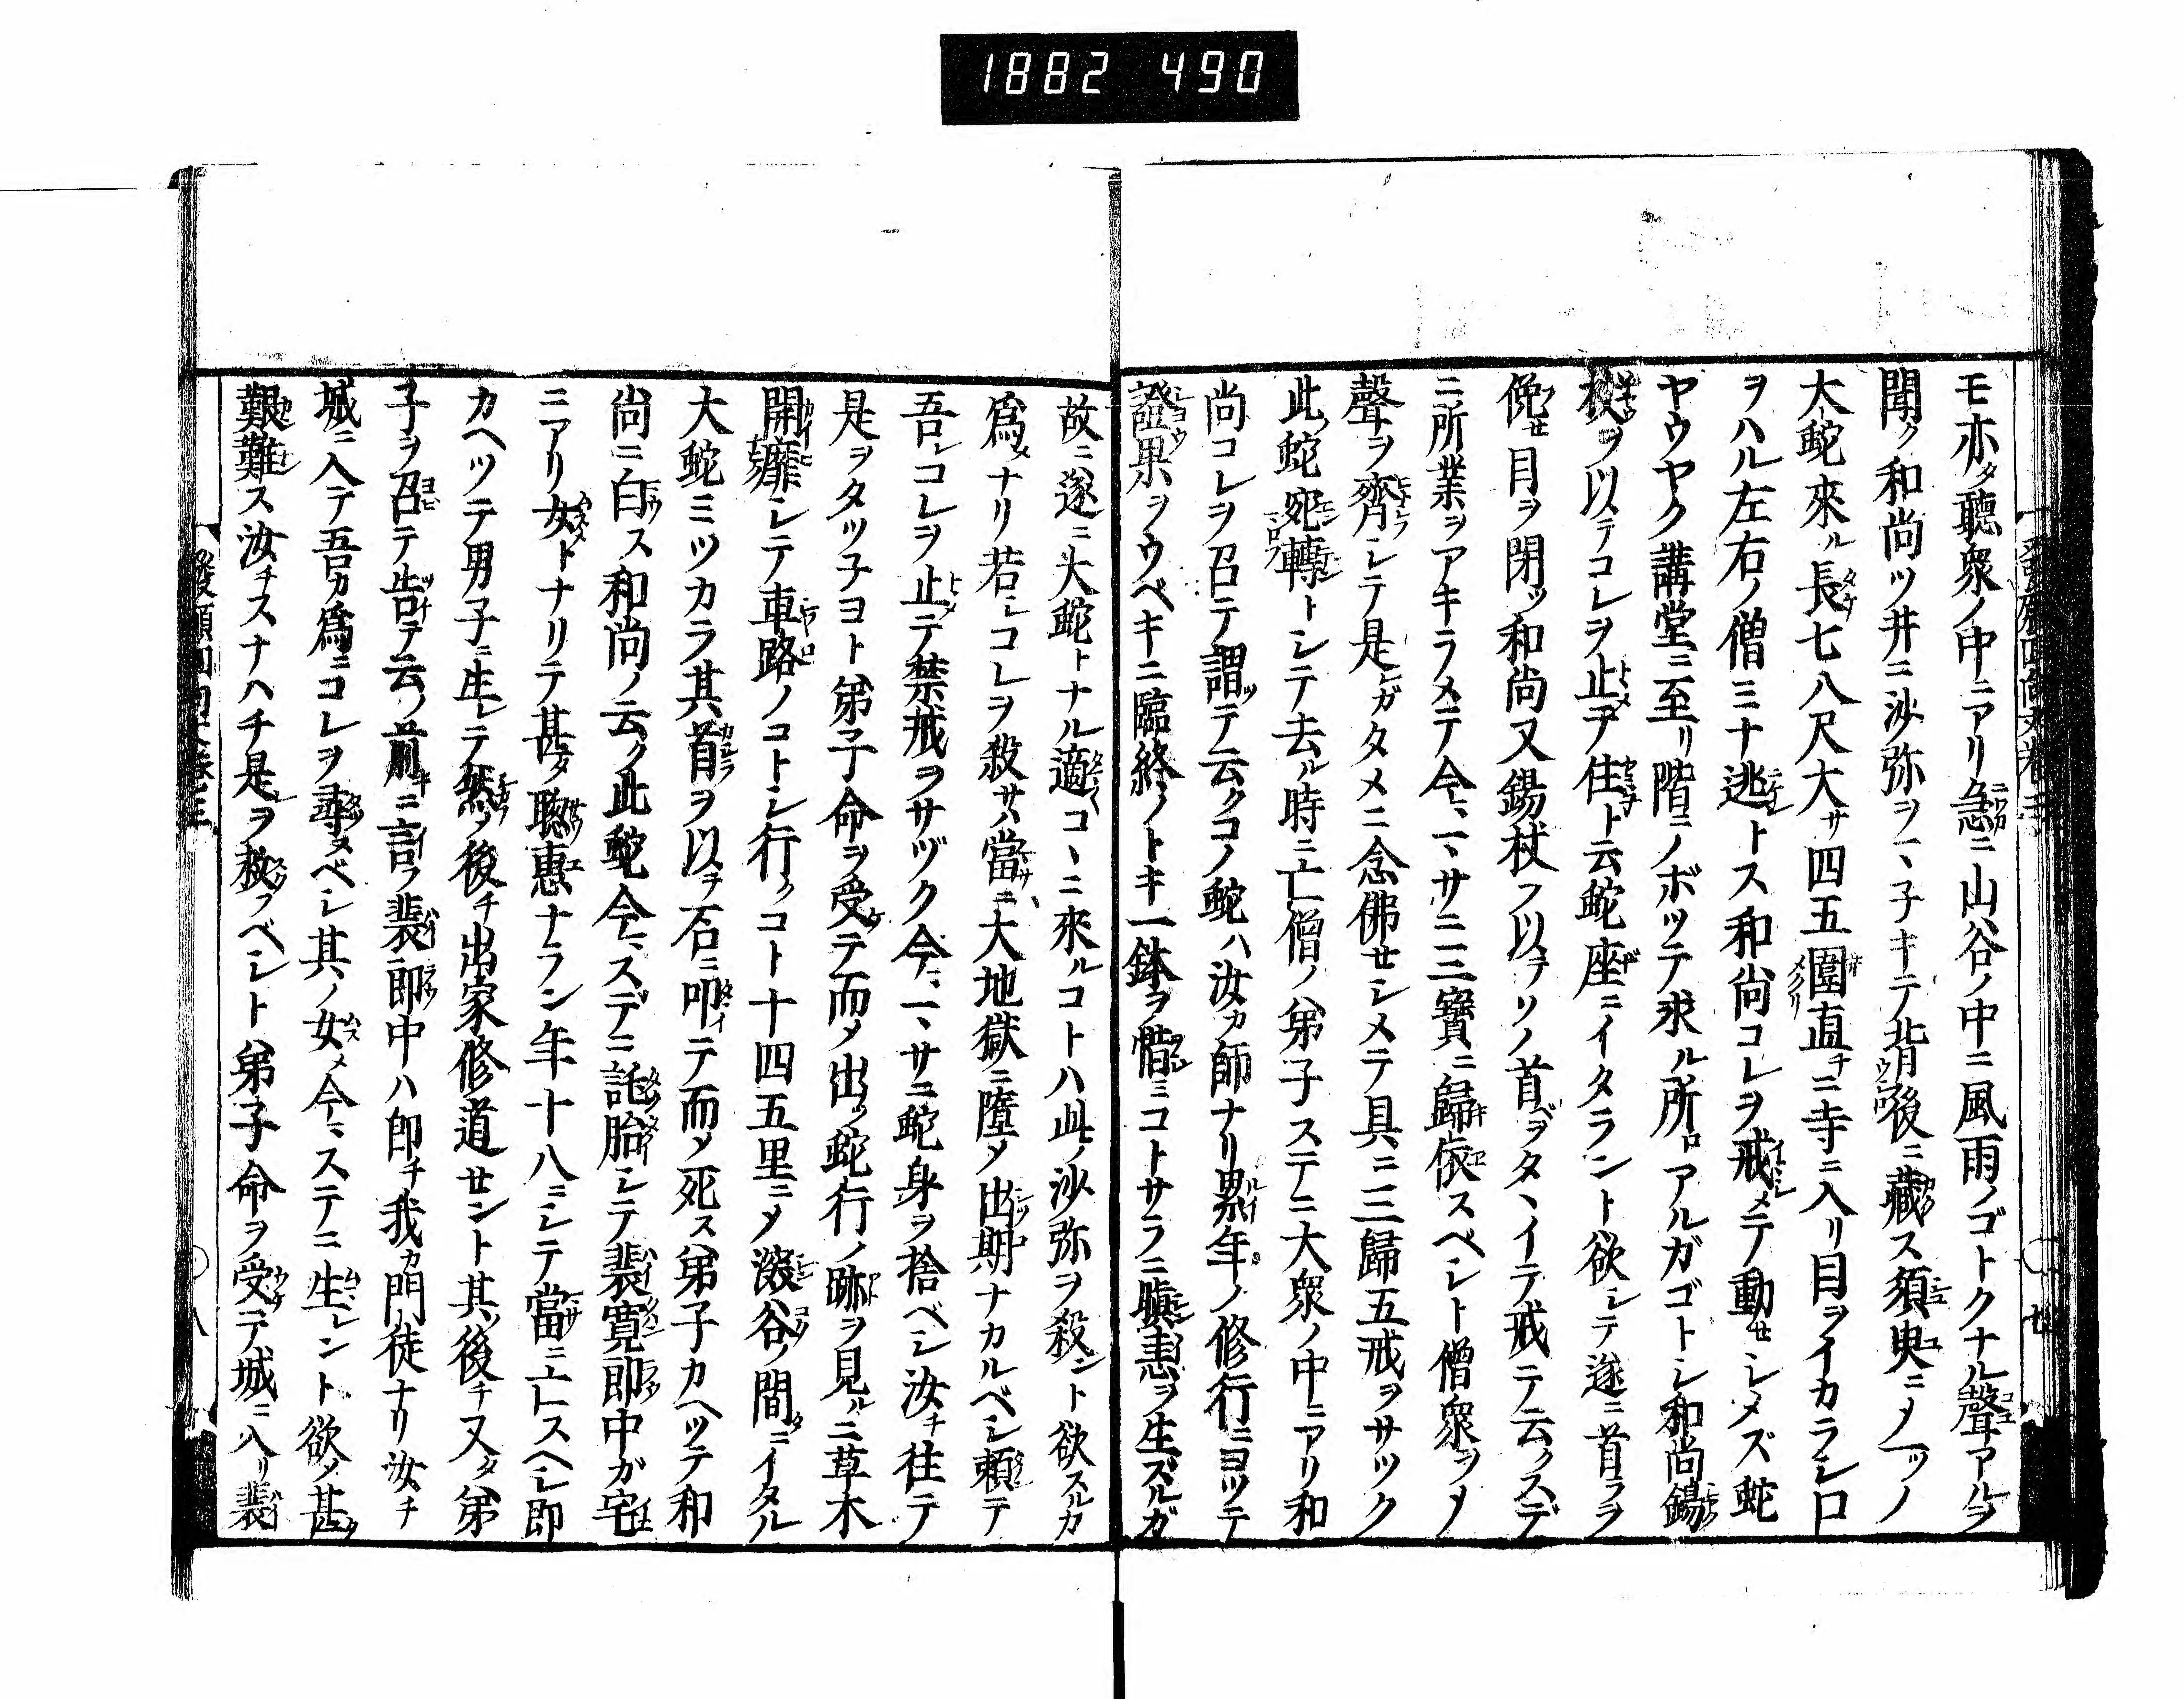 1882 490
モ亦タ聽衆ノ中ニアリ急ニ山谷ノ中ニ風雨ノゴトクナル聲アルヲ
聞ク和尚ツ井ニ沙弥ヲ一子キテ背後ニ藏ス須臾ニメ一ツノ
大蛇來ル長七八尺大サ四五圍直チニ寺ニ入リ目ヲイカラシ口
ヲハル左右ノ僧ミナ逃ントス和尚コレヲ戒メテ動セシメズ蛇
ヤウヤク講堂ニ至リ階ニノボツテ求ル所ロアルガゴトシ和尚錫
杖ヲ以テコレヲ止テ住ト云蛇座ニイタラント欲シテ遂ニ首ラヲ
俛セ目ヲ閉ツ和尚又錫杖ヲ以テソノ首ベヲタヽイテ戒テ云クスデ
ニ所業ヲアキラメテ今マサニ三寶ニ歸依スベシト僧衆ヲメ
聲ヲ齊シテ是ガタメニ念佛セシメテ具ニ三歸五戒ヲサツク
此蛇宛轉トシテ去ル時ニ亡僧ノ弟子ステニ大衆ノ中ニアリ和
尚コレヲ召テ謂テ云クコノ蛇ハ汝カ師ナリ累年ノ修行ニヨツテ
證果ヲウベキニ臨終ノトキ一鉢ヲ惜ミコトサラニ瞋恚ヲ生ズルガ
故ニ遂ニ大蛇トナル適コヽニ來ルコトハ此ノ沙弥ヲ殺ント欲スルカ
爲メナリ若シコレヲ殺サハ當ニ大地獄ニ墮メ出期ナカルベシ頼テ
吾レコレヲ止テ禁戒ヲサヅク今マサニ蛇身ヲ捨ベシ汝チ往テ
是ヲタツ子ヨト弟子命ヲ受テ而メ出ツ蛇行ノ跡ヲ見ルニ草木
開靡シテ車路ノコトシ行クコト十四五里ニメ深谷ノ間ニイタル
大蛇ミツカラ其首ヲ以テ石ニ叩テ而メ死ス弟子カヘツテ和
尚ニ白ス和尚ノ云ク此蛇今スデニ託胎シテ裴寛郎中ガ宅
ニアリ女トナリテ甚タ聡惠ナラン年十八ニシテ當ニ亡スヘシ即
カヘツテ男子ニ生レテ然ノ後チ出家修道セント其後チ又タ弟
子ヲ召テ告テ云ノ前キニ言フ裴郎中ハ即チ我カ門徒ナリ汝チ
城ニ入テ吾カ爲ニコレヲ尋ヌベシ其ノ女メ今ステニ生レント欲メ甚タ
艱難ス汝チスナハチ是ヲ救フベシト弟子命ヲ受テ城ニ入リ裴